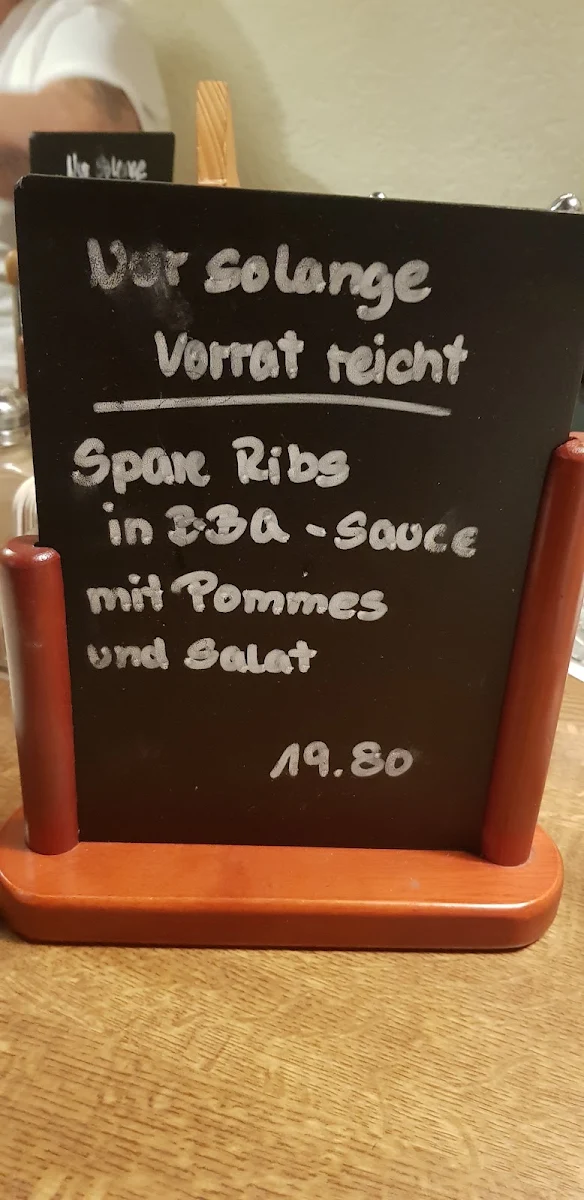 Nur solange
Nur solange
Vorrat reicht
Spare Ribs
in BBQ-Sauce
mit Pommes
und Salat
19.80